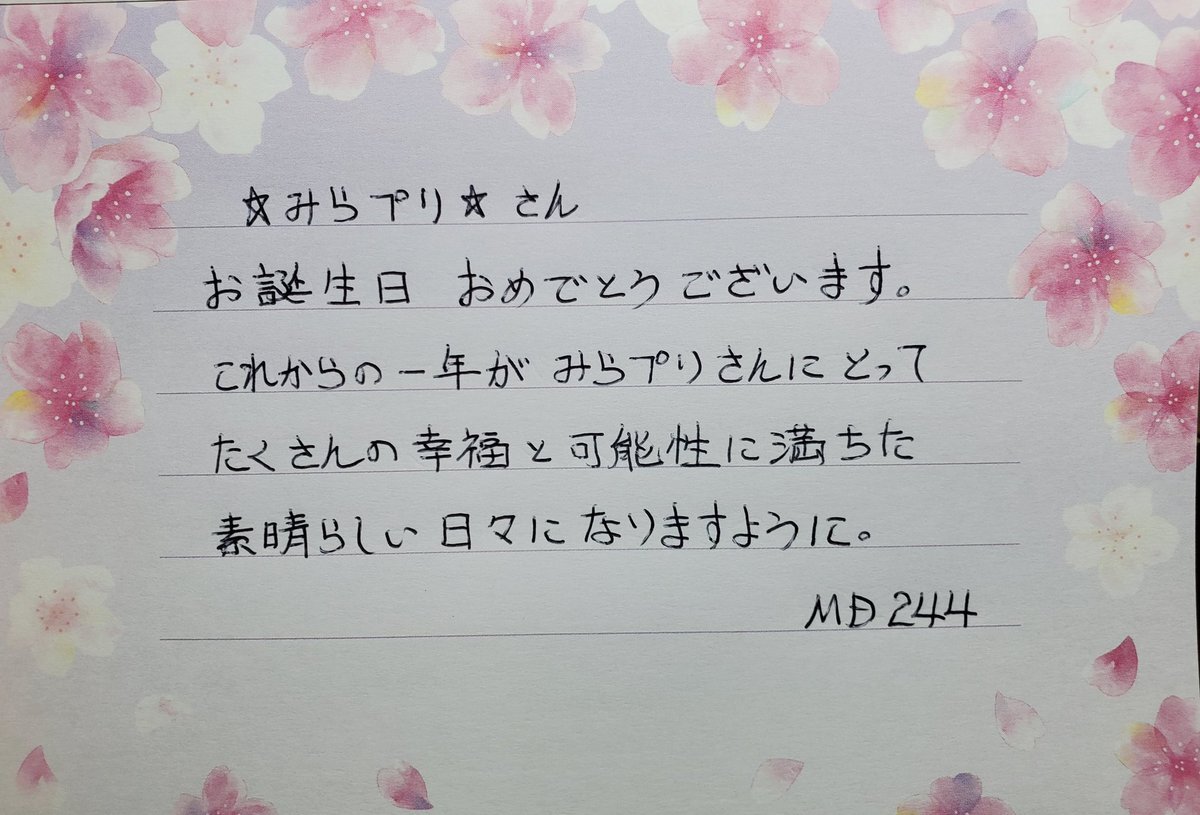 ☆みらプリ☆さん
お誕生日 おめでとうございます。
これからの一年が みらプリさんにとって
たくさんの幸福と可能性に満ちた
素晴らしい日々になりますように。
MD244